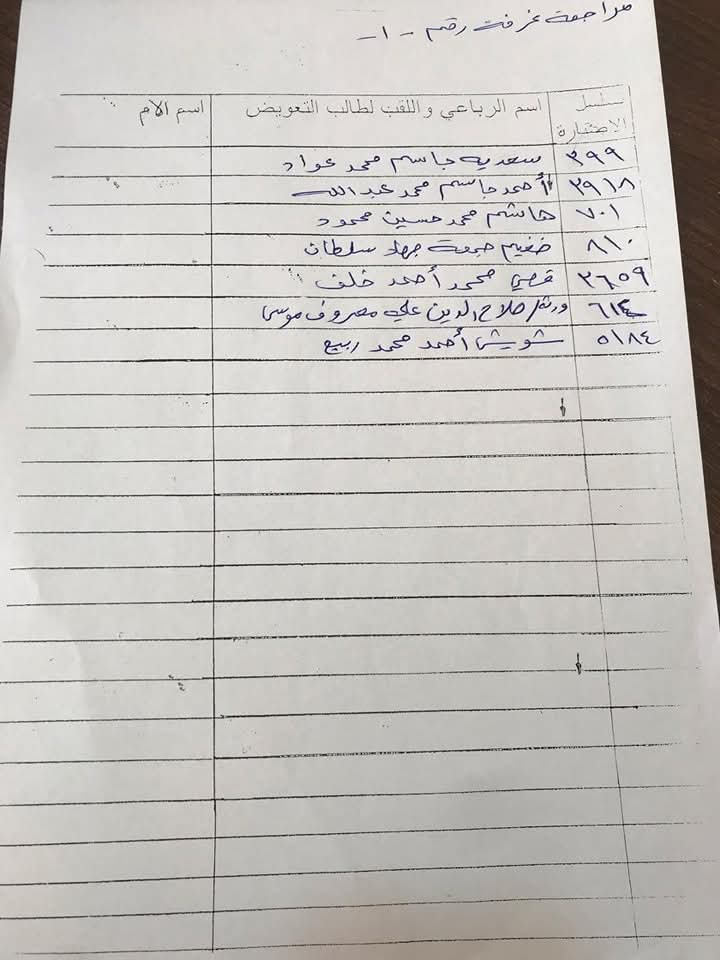 مراجعة غرفة رقم - ١ -
سلسل الاضبارة اسم الرباعي واللقب لطالب التعويض اسم الام
٣٩٩ سعديه جاسم محمد عواد
٣٩١٨ أحمد جاسم محمد عبد الله
٧٠١ هاشم محمد حسين محمود
٨١٠ ضغيم جمعة جهاد سلطان
٣٦٥٩ قصي محمد أحمد خلف
٦١٤ ورثة/ صلاح الدين علي معروف موسى
٥١٨٤ شويش أحمد محمد ربيع